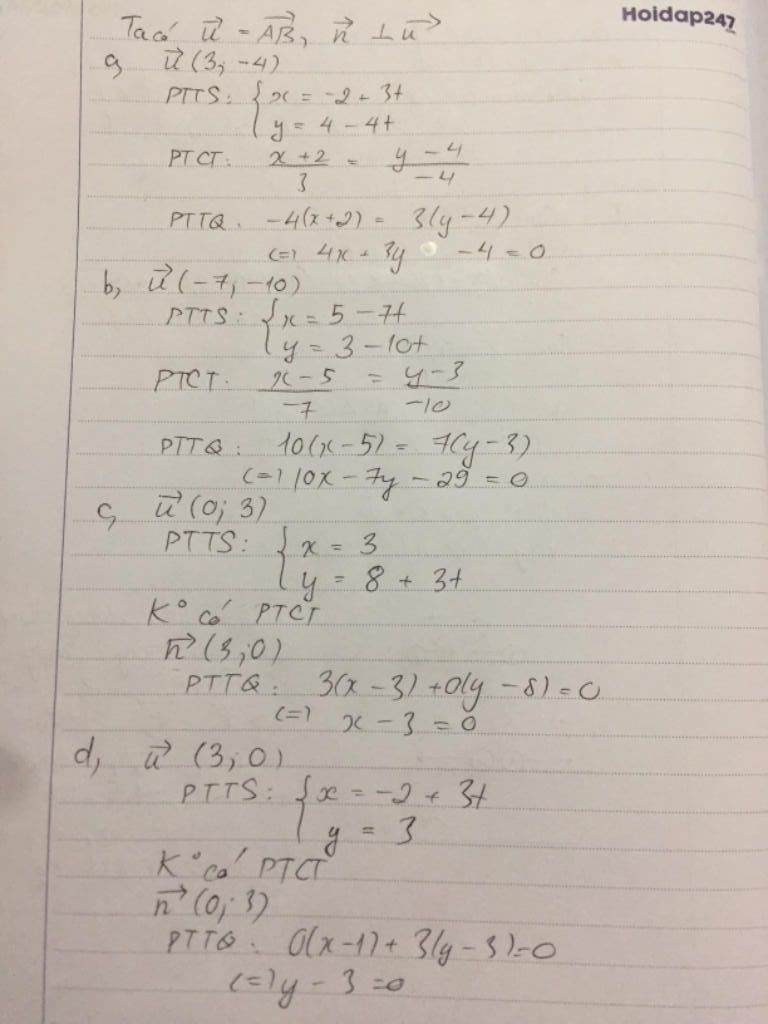 Hoidap247
Ta có u⃗ = AB⃗, n⃗ ⊥ u⃗
a, u⃗ (3; -4)
PTTS: { x = -2 + 3t
y = 4 - 4t
PTCT: (x + 2)/3 = (y - 4)/-4
PTTQ. -4(x+2) = 3(y-4)
(=) 4x + 3y - 4 = 0
b, u⃗ (-7; -10)
PTTS: { x = 5 - 7t
y = 3 - 10t
PTCT. (x - 5)/-7 = (y - 3)/-10
PTTQ: 10(x-5) = 7(y-3)
(=) 10x - 7y - 29 = 0
c, u⃗ (0; 3)
PTTS: { x = 3
y = 8 + 3t
K° có PTCT
n⃗ (3;0)
PTTQ: 3(x-3) + 0(y-8) = 0
(=) x - 3 = 0
d, u⃗ (3; 0)
PTTS: { x = -2 + 3t
y = 3
K° có PTCT
n⃗ (0; 3)
PTTQ. 0(x-1) + 3(y-3) = 0
(=) y - 3 = 0